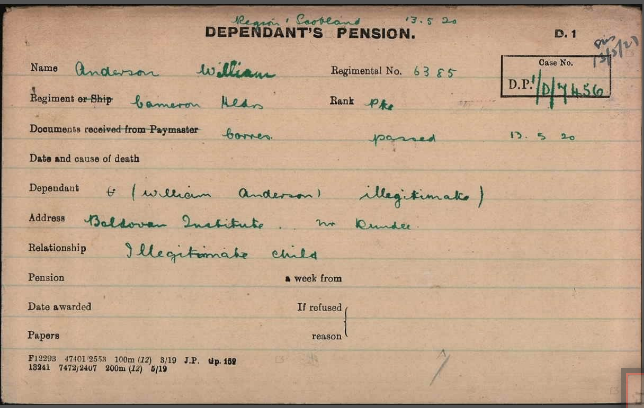 Region' Scotland 13.5.20
DEPENDANT'S PENSION. D. 1
13/5/20
Name Anderson William Regimental No. 6385 Case No.
D.P. 1/D/7456
Regiment or Ship Cameron Hldrs Rank Pte
Documents received from Paymaster Corres. passed 13.5.20
Date and cause of death
Dependant (William Anderson illegitimate)
Address Baldovan Institute. nr Dundee
Relationship Illegitimate child
Pension a week from
Date awarded If refused
Papers reason
F12293 47401/2553 100m (12) 3/19 J.P. Gp. 152
13241 7472/2407 200m (12) 5/19